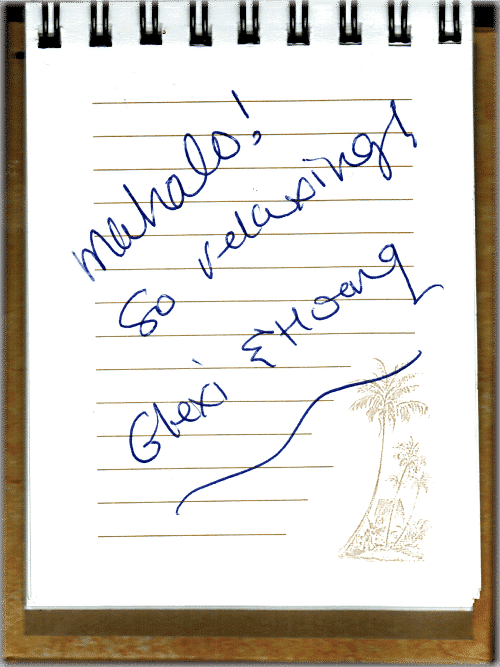 Mahalo!
So relaxing!
Glexi & Hoang